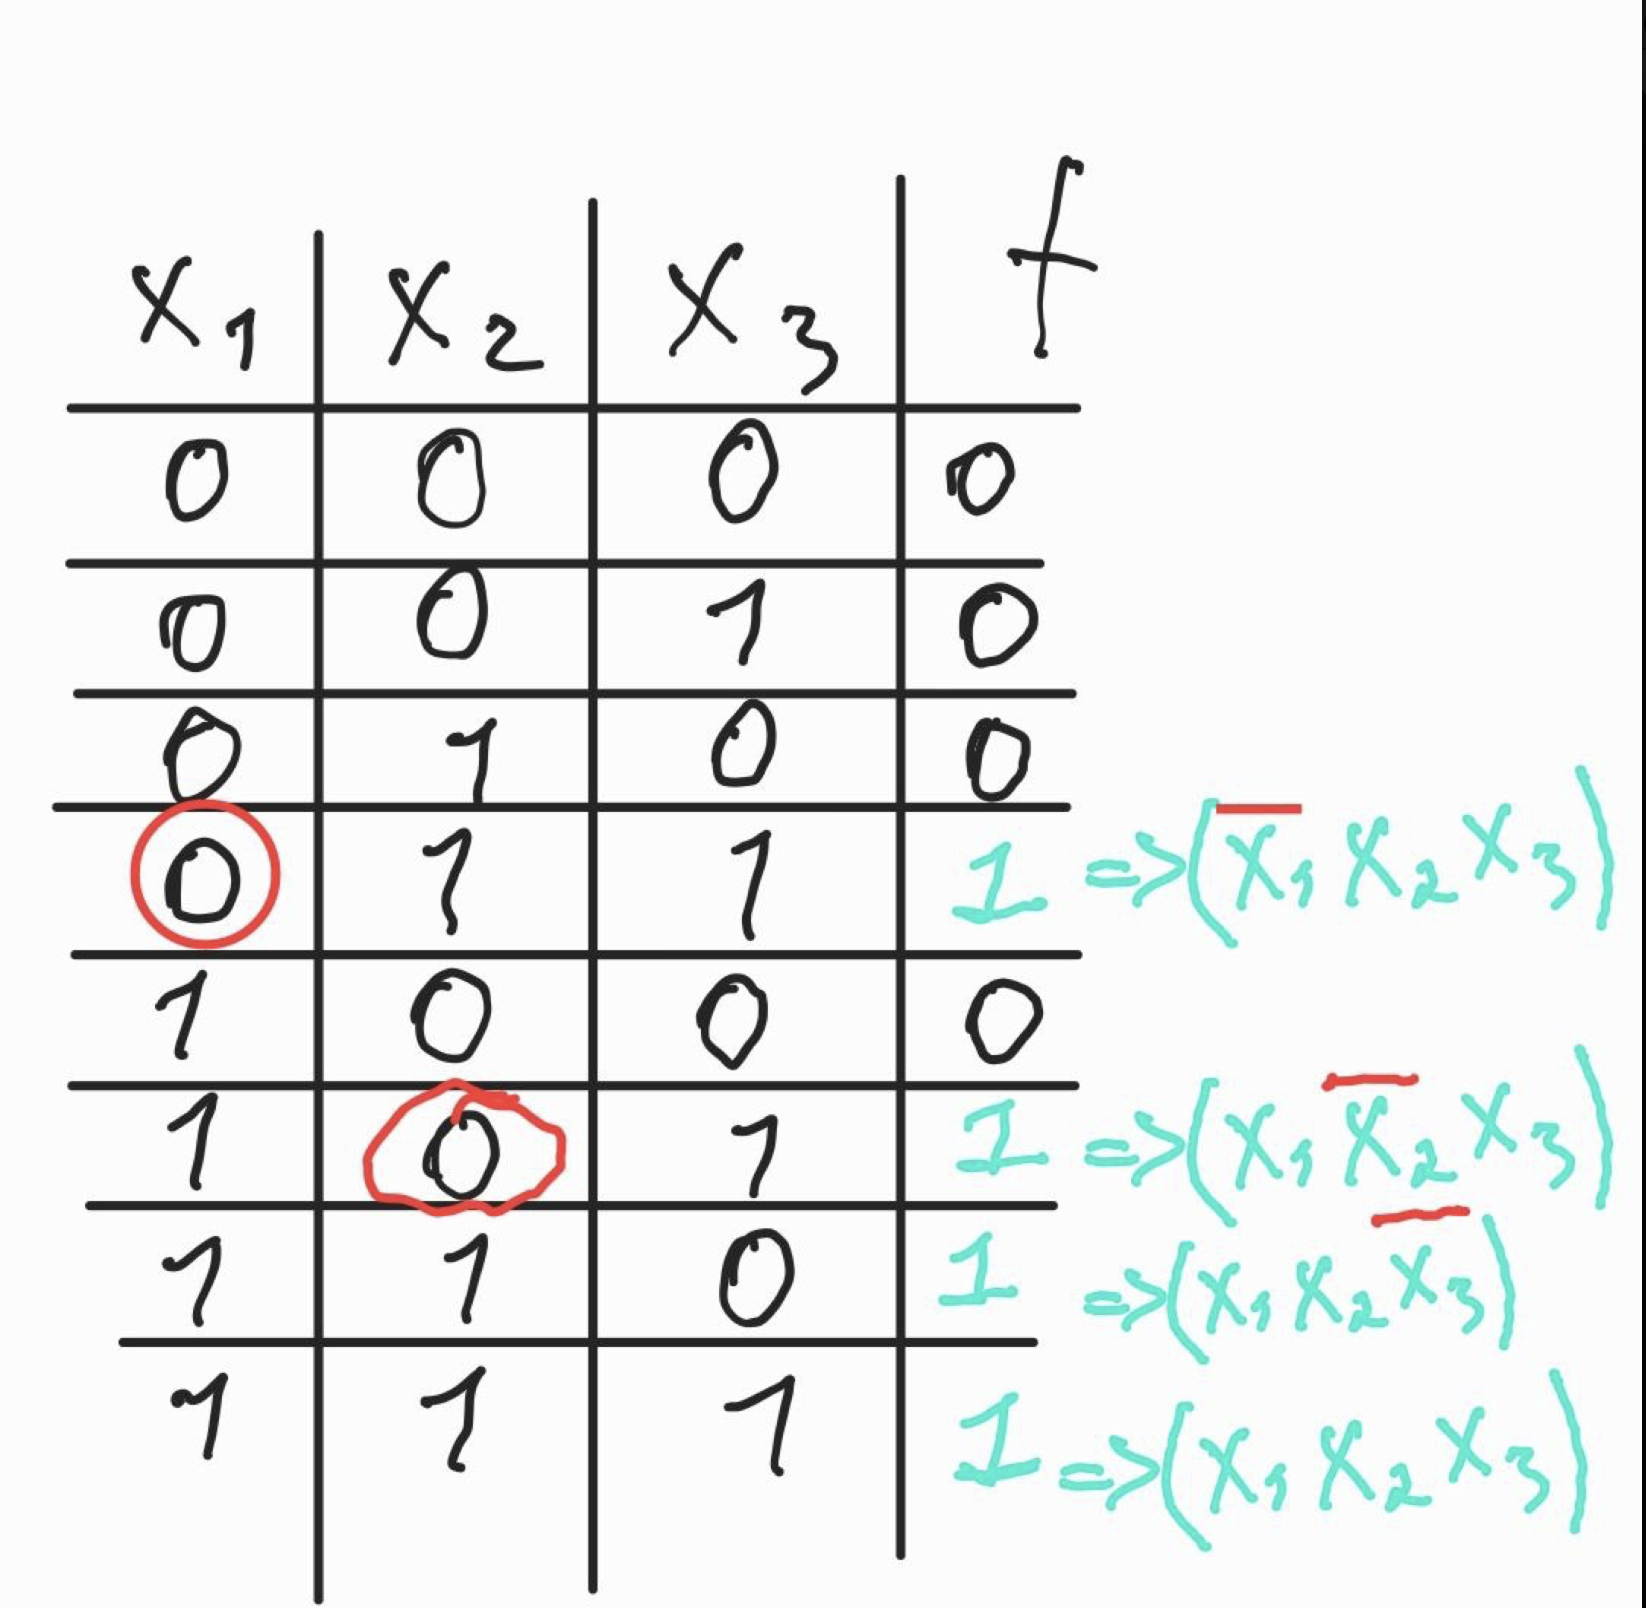 x₁ x₂ x₃ f
0 0 0 0
0 0 1 0
0 1 0 0
0 1 1 1 => (x̅₁ x₂ x₃)
1 0 0 0
1 0 1 1 => (x₁ x̅₂ x₃)
1 1 0 1 => (x₁ x₂ x̅₃)
1 1 1 1 => (x₁ x₂ x₃)